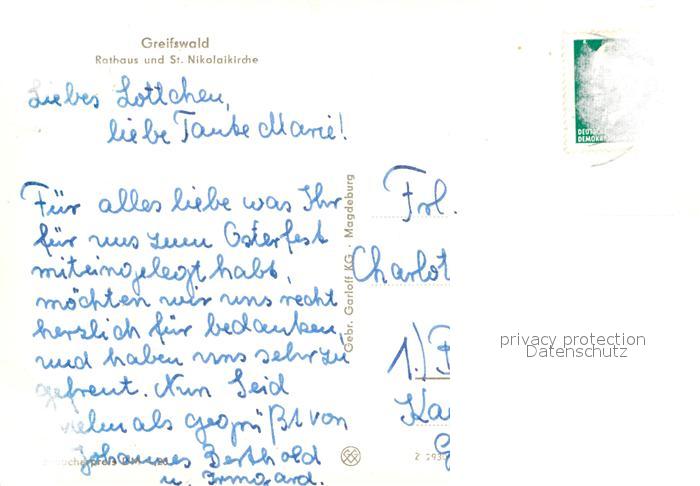 Greifswald
Rathaus und St. Nikolaikirche
Liebes Lottchen,
liebe Tante Marie!
Für alles liebe was Ihr
für uns zum Osterfest
miteingelegt habt,
möchten wir uns recht
herzlich für bedanken,
und haben uns sehr zu
gefreut. Nun Seid
vielmals gegrüßt von
Johannes Berthold
u. Irmgard.
Gebr. Garloff KG · Magdeburg
DEUTSCHE
DEMOKR
Frl.
Charlot
1.)
Ka
privacy protection
Datenschutz